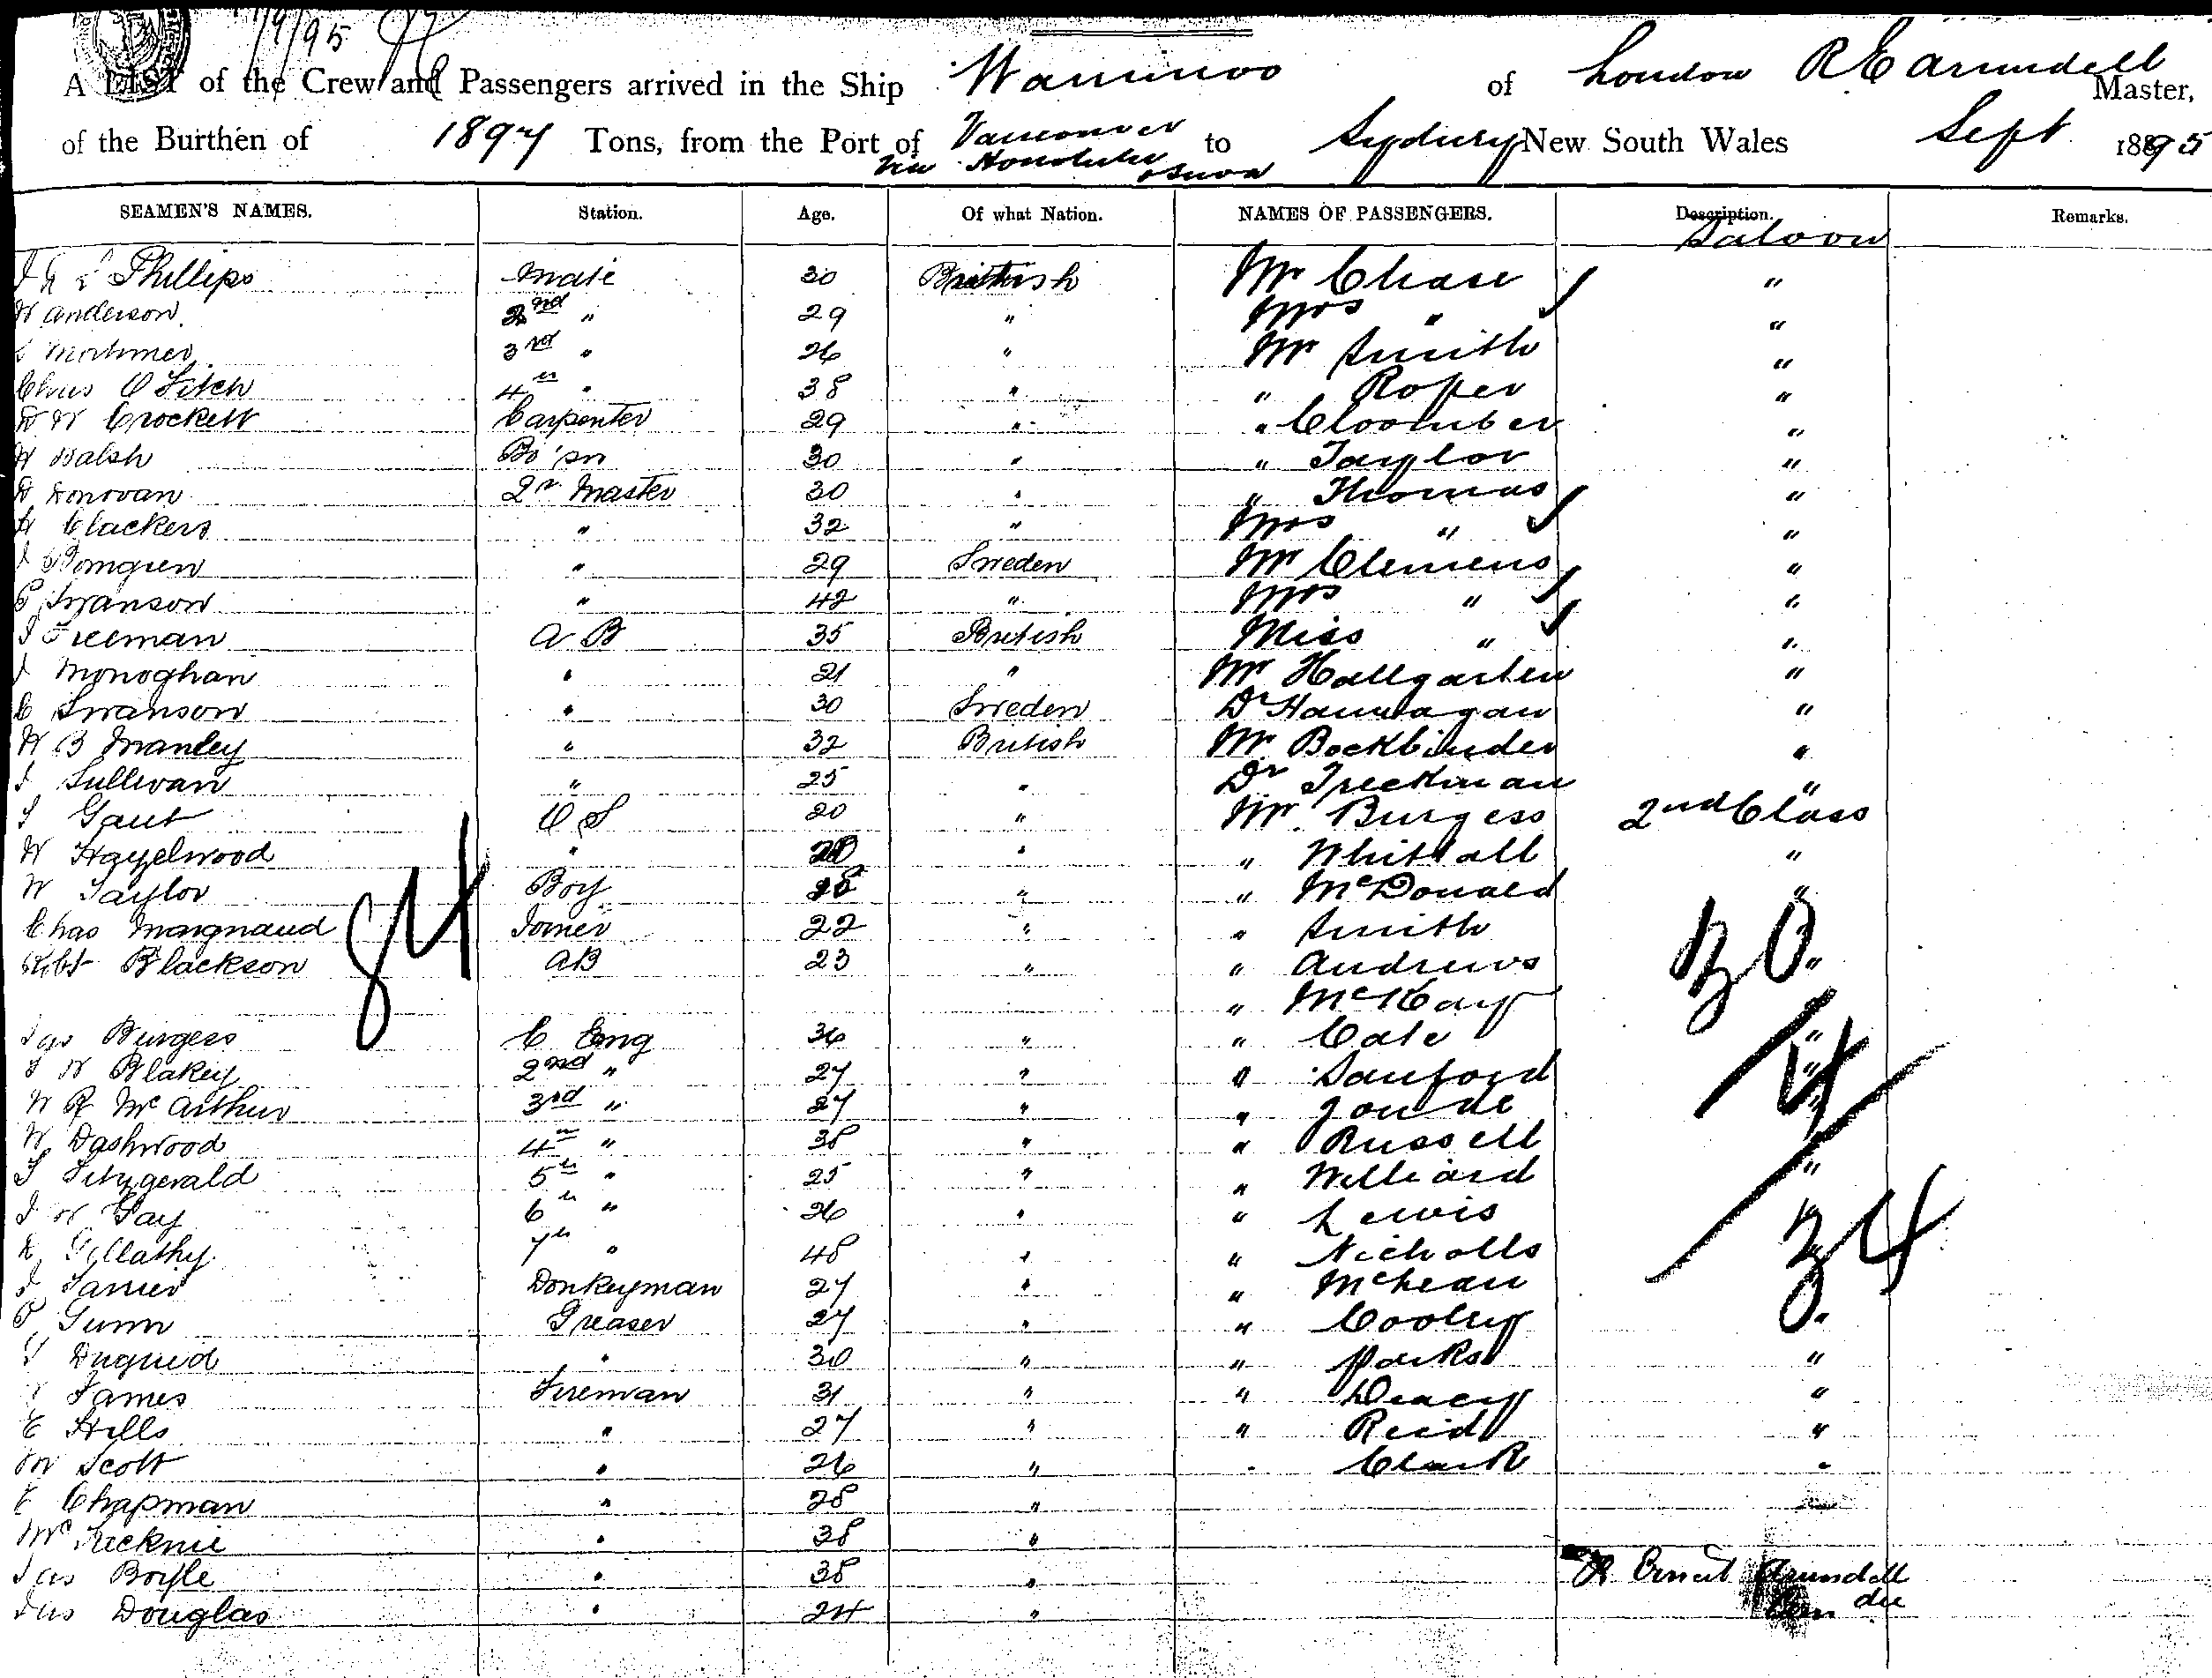 1/9/95
A LIST of the Crew and Passengers arrived in the Ship Warrimoo of London R E Arundell Master,
of the Burthen of 1897 Tons, from the Port of Vancouver to Sydney New South Wales Sept 1895
via Honolulu & Suva
SEAMEN'S NAMES. Station. Age. Of what Nation. NAMES OF PASSENGERS. Description. Remarks.
Saloon
Phillips Mate 30 British Mr Chase "
W Anderson 2nd " 29 " Mrs " "
Mortimer 3rd " 26 " Mr Smith "
Chas O Fitch 4th " 38 " " Roper "
D W Crockett Carpenter 29 " " Cloomber "
W Walsh Bo'sn 30 " " Taylor "
D Donovan 2r Master 30 " " Thomas "
H Clackers " 32 " Mrs " "
" 29 Sweden Mr Clemens "
P Swanson " 42 " Mrs " "
J Freeman A B 35 British Miss " "
J Monoghan " 21 " Mr Hallgarten "
C Swanson " 30 Sweden Dr "
W B Manley " 32 British Mr Bockbinder "
J Sullivan " 25 " Dr "
J Gaut O S 20 " Mr Burgess 2nd Class
W Hazelwood " 20 " " Whittall "
W Taylor Boy " " McDonald "
Chas Joiner 22 " " Smith
Robt Blackson AB 23 " " Andrews "
" McKay
84
30.
Jas Burgess C Eng 36 " " Cate "
J W Blakey 2nd " 27 " " Sanford "
W R McArthur 3rd " 27 " "
W Dashwood 4th " 38 " " Russell
J Fitzgerald 5th " 25 " " Williard "
J W Gay 6th " 26 " " Lewis "
7th " 48 " " Nicholls
34
Donkeyman 27 " " McLean
P Gunn Greaser 27 " " Cooley
Duguid " 30 " " Parks "
James Fireman 31 " " Deacy "
E Hills " 27 " " Reid "
W Scott " 26 " " Clark "
E Chapman " 28 "
McKecknie " 38 "
Jas Boyle " 38 " R Ernest Arundell
Jas Douglas " 24 "